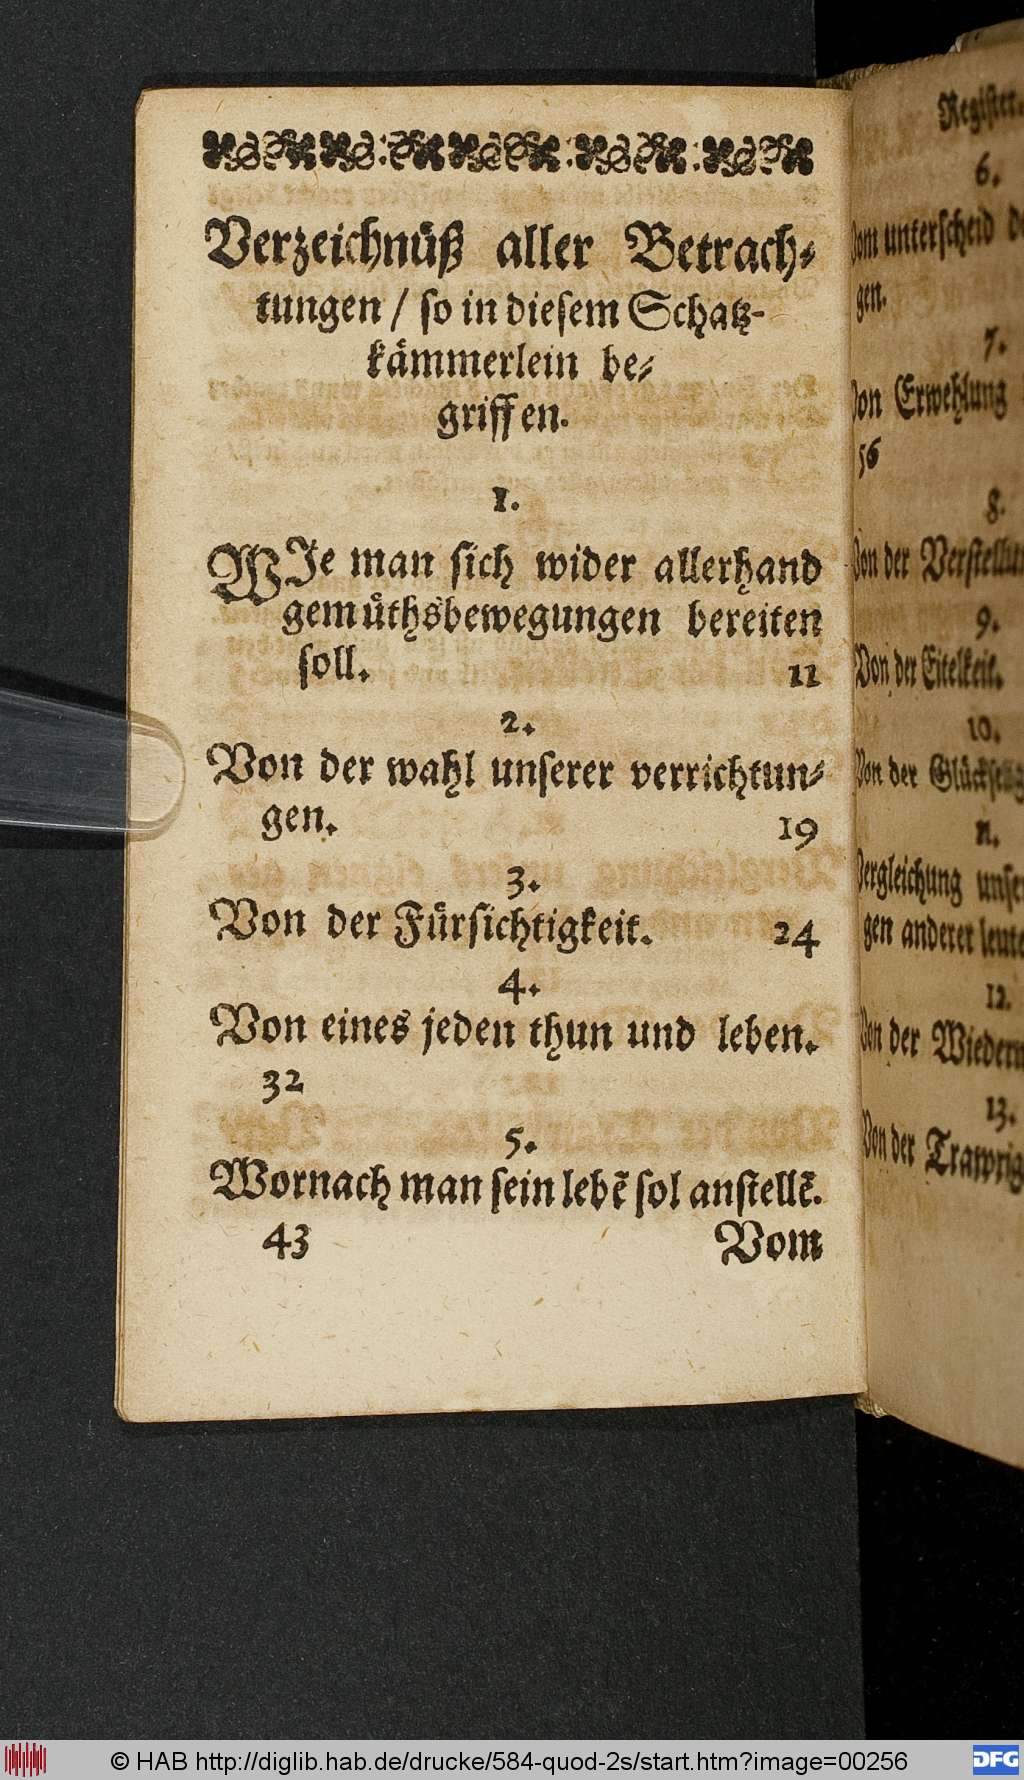 Verzeichnüß aller Betrach-
tungen / so in diesem Schatz-
kämmerlein be-
griffen.
1.
WIe man sich wider allerhand
gemüthsbewegungen bereiten
soll. 11
2.
Von der wahl unserer verrichtun-
gen. 19
3.
Von der Fürsichtigkeit. 24
4.
Von eines jeden thun und leben.
32
5.
Wornach man sein lebẽ sol anstellẽ.
43 Vom
Register.
6.
Vom unterscheid
gen.
7.
Von Erwehlung
56
8.
Von der
9.
Von der Eitelkeit.
10.
Von der
11.
Vergleichung
gen anderer
12.
Von der
13.
Von der
© HAB http://diglib.hab.de/drucke/584-quod-2s/start.htm?image=00256
DFG